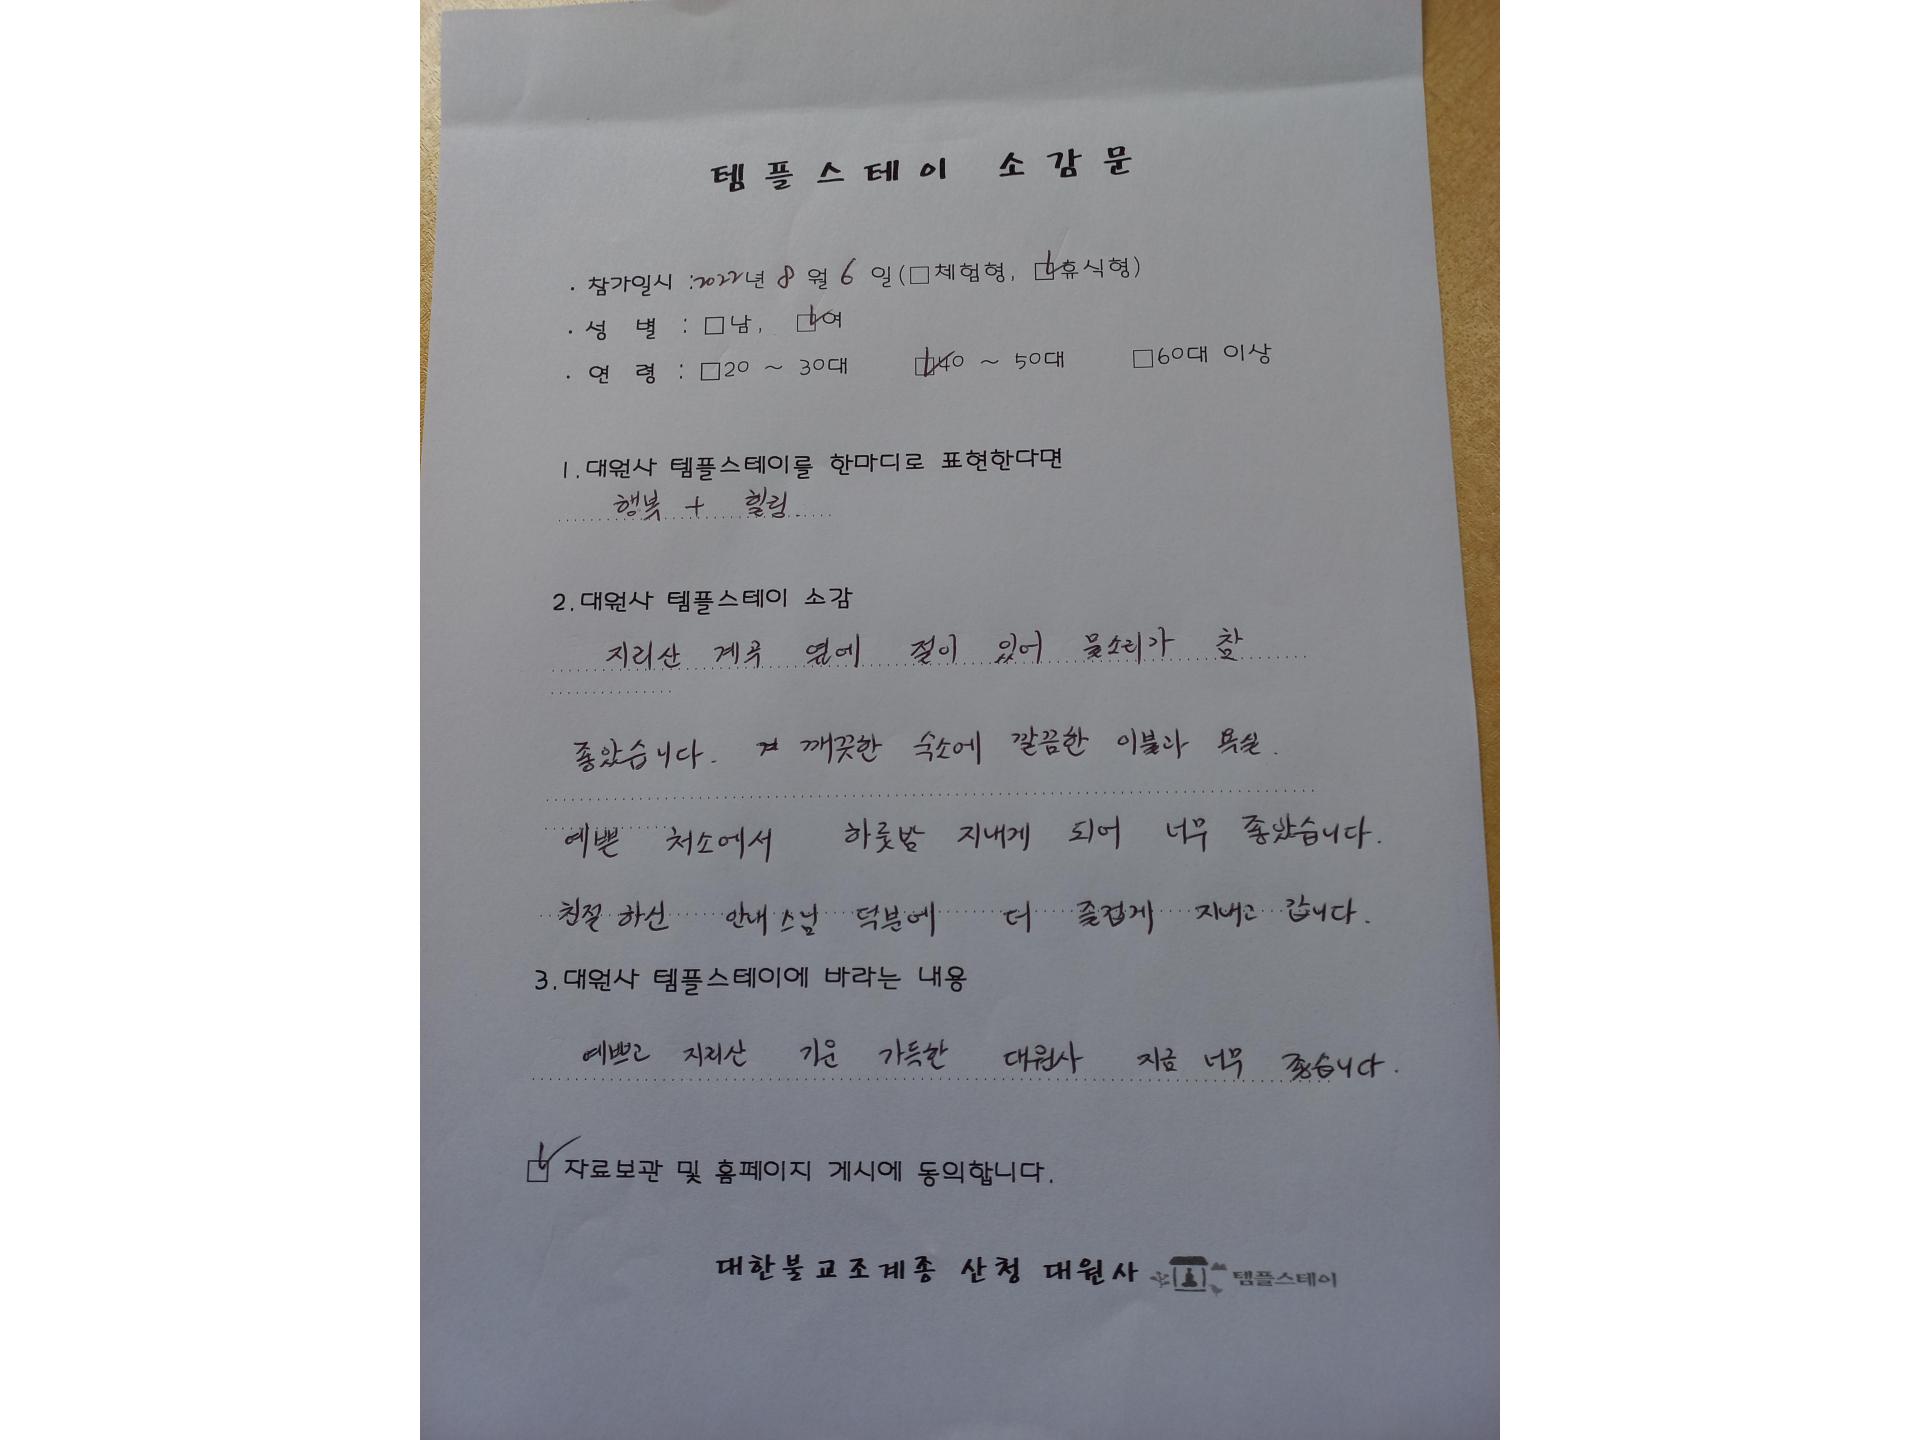 템플스테이 소감문
· 참가일시 :2022년 8월 6일(□체험형, ☑휴식형)
· 성 별 : □남, ☑여
· 연 령 : □20 ~ 30대 ☑40 ~ 50대 □60대 이상
1.대원사 템플스테이를 한마디로 표현한다면
행복 + 힐링.
2.대원사 템플스테이 소감
지리산 계곡 옆에 절이 있어 물소리가 참
좋았습니다. 깨끗한 숙소에 깔끔한 이불과 욕실.
예쁜 처소에서 하룻밤 지내게 되어 너무 좋았습니다.
친절하신 안내스님 덕분에 더 즐겁게 지내고 갑니다.
3.대원사 템플스테이에 바라는 내용
예쁘고 지리산 기운 가득한 대원사 지금 너무 좋습니다.
☑ 자료보관 및 홈페이지 게시에 동의합니다.
대한불교조계종 산청 대원사 템플스테이